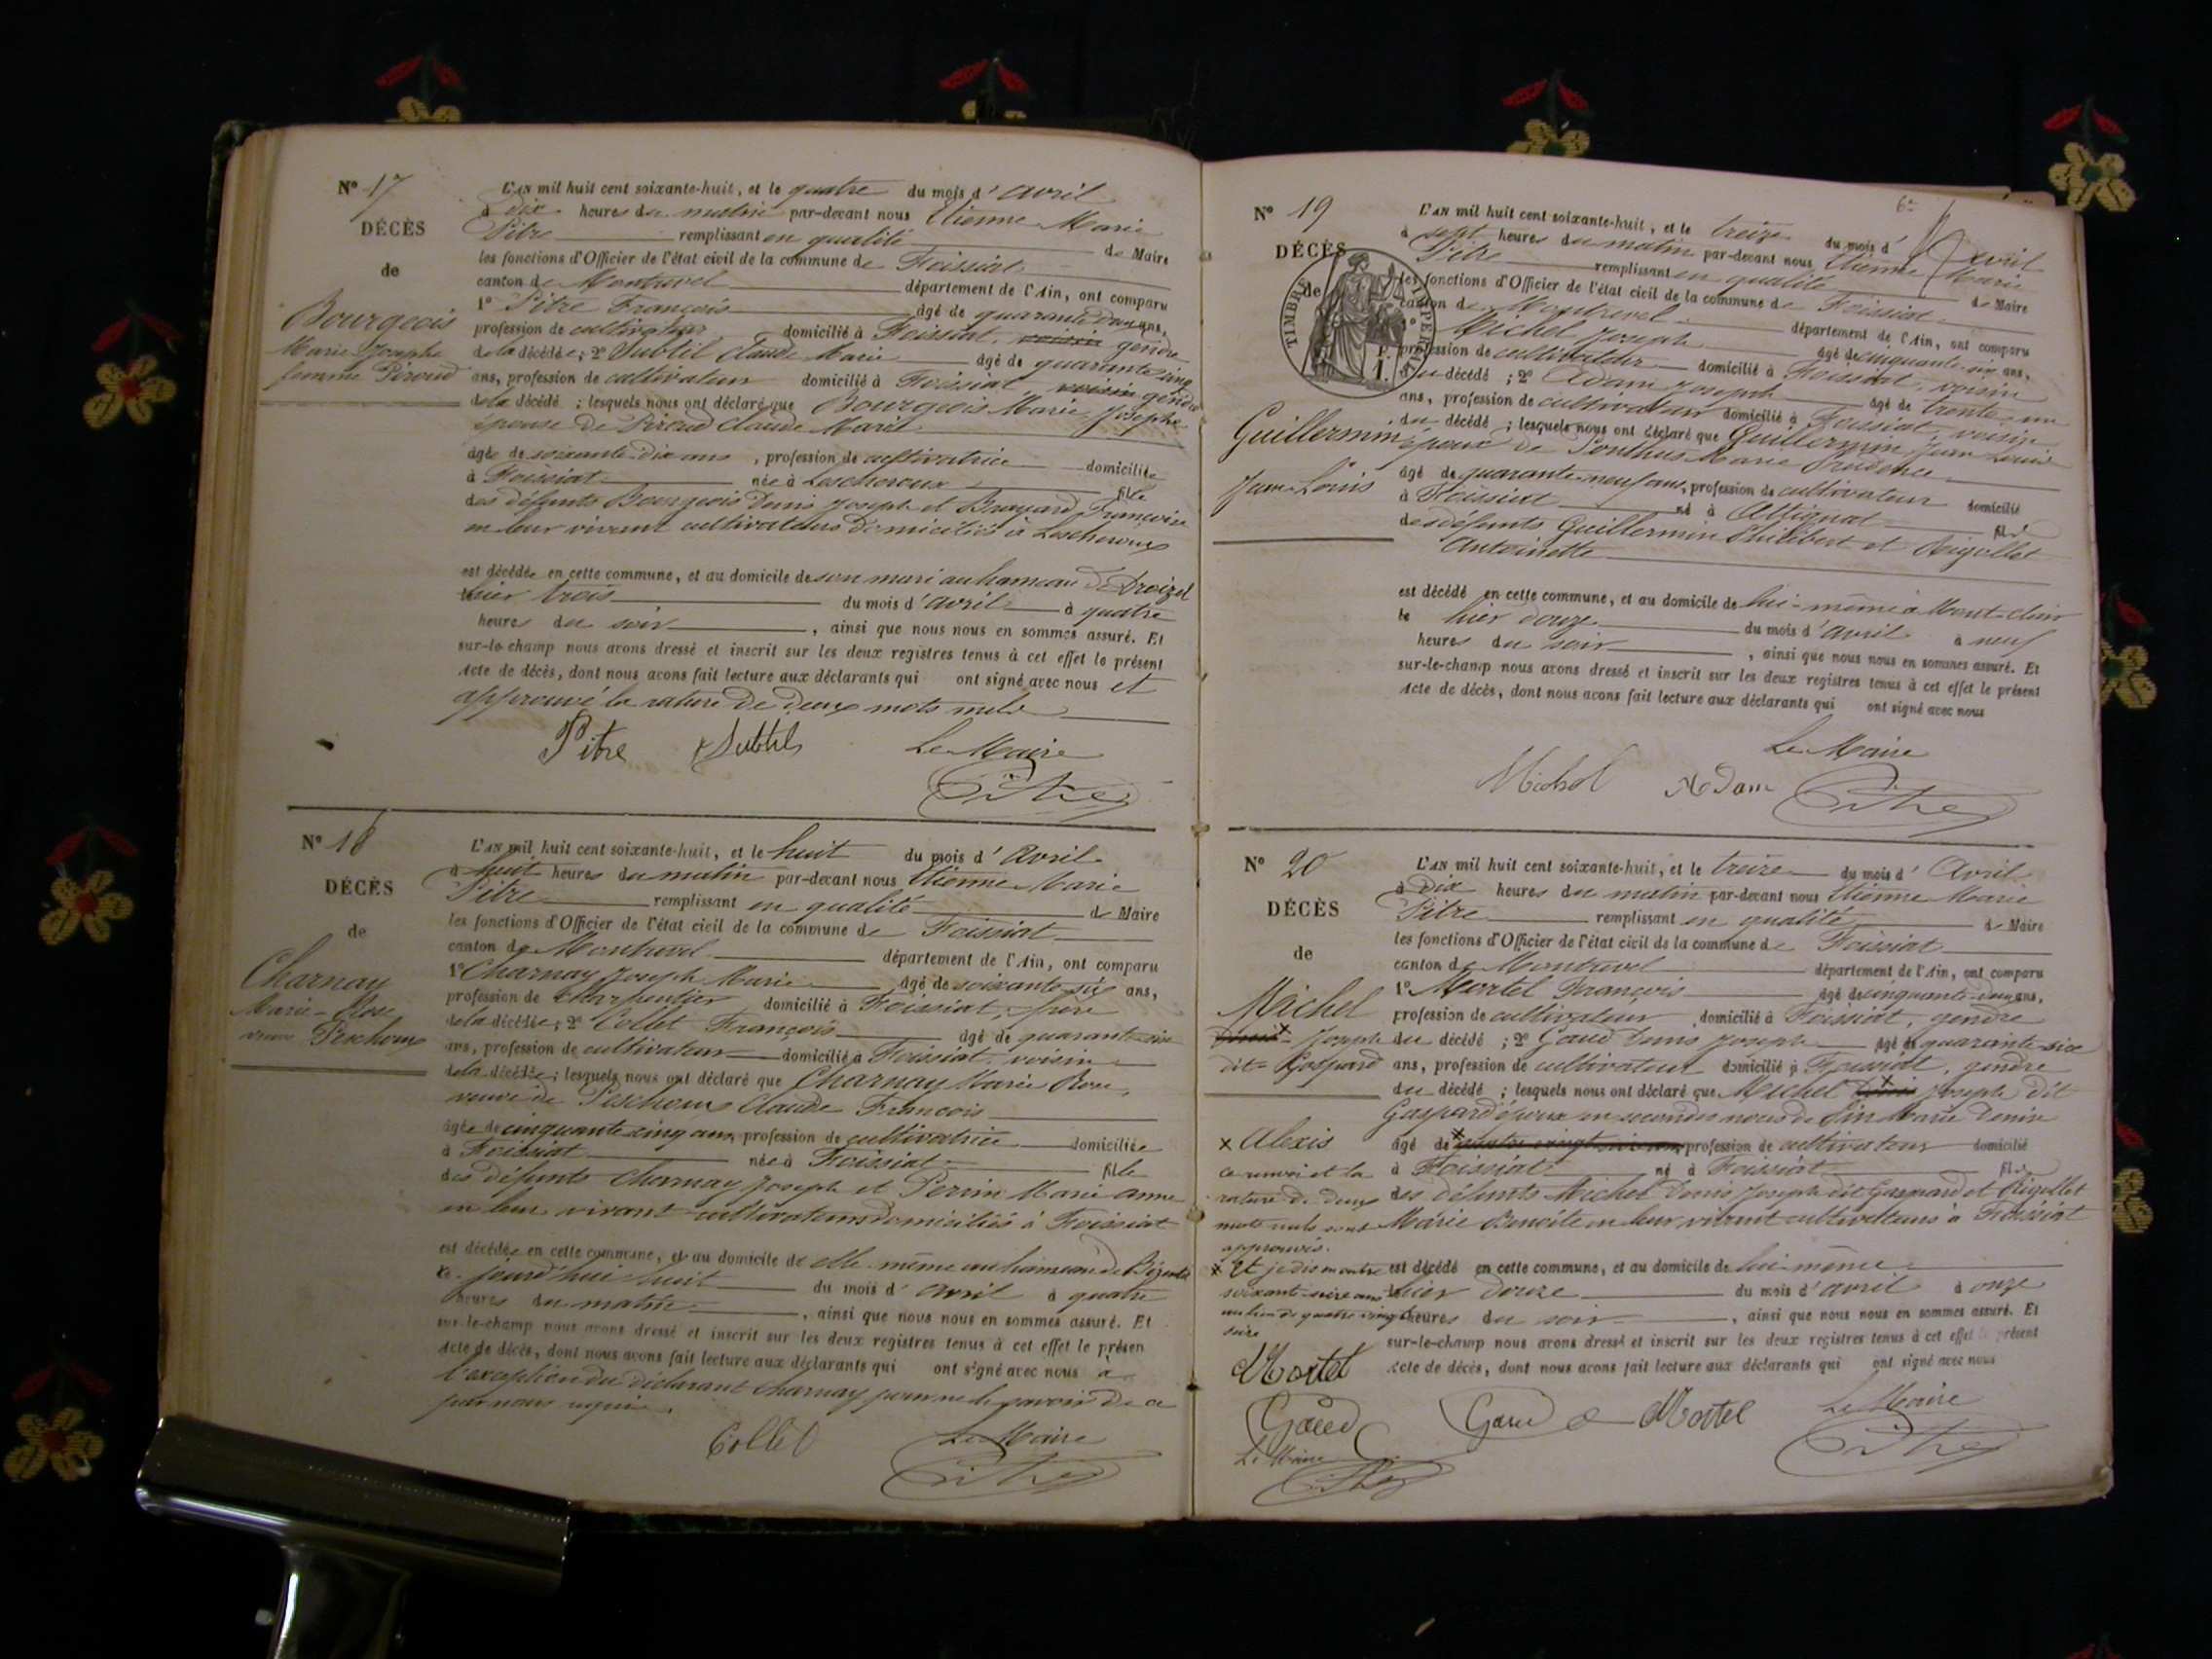 N° 17
DÉCÈS
de
Bourgeois
Marie Josephe
femme Piroud
L'AN mil huit cent soixante-huit, et le quatre du mois d'avril
à Dix heures du matin par-devant nous Etienne Marie
Pitre remplissant en qualité de Maire
les fonctions d'Officier de l'état civil de la commune de Foissiat
canton de Montrevel département de l'Ain, ont comparu
1° Pitre François âgé de quarante deux ans,
profession de cultivateur domicilié à Foissiat, voisin gendre
de la décédée; 2° Subtil Claude Marie âgé de quarante cinq
ans, profession de cultivateur domicilié à Foissiat voisin gendre
de la décédé ; lesquels nous ont déclaré que Bourgeois Marie Josephe
épouse de Piroud Claude Marie
âgée de soixante-dix ans, profession de cultivatrice domiciliée
à Foissiat née à Lescheroux fille
des défunts Bourgeois Denis Joseph et Françoise
en leur vivant cultivateurs domiciliés à Lescheroux
est décédée en cette commune, et au domicile de son mari au hameau de Droizel
hier trois du mois d'avril à quatre
heures du soir, ainsi que nous nous en sommes assuré. Et
sur-le-champ nous avons dressé et inscrit sur les deux registres tenus à cet effet le présent
Acte de décès, dont nous avons fait lecture aux déclarants qui ont signé avec nous et
approuvé la rature de deux mots nuls
Pitre Subtil Le Maire
Pitre
N° 18
DÉCÈS
de
Charnay
Marie-Rose
veuve Peschoux
L'AN mil huit cent soixante-huit, et le huit du mois d'Avril
à huit heures du matin par-devant nous Etienne Marie
Pitre remplissant en qualité de Maire
les fonctions d'Officier de l'état civil de la commune de Foissiat
canton de Montrevel département de l'Ain, ont comparu
1° Charnay Joseph Marie âgé de soixante six ans,
profession de charpentier domicilié à Foissiat, frère
de la décédée; 2° Collet François âgé de quarante-six
ans, profession de cultivateur domicilié à Foissiat, voisin
de la décédée; lesquels nous ont déclaré que Charnay Marie Rose,
veuve de Peschoux Claude François
âgée de cinquante cinq ans, profession de cultivatrice domiciliée
à Foissiat née à Foissiat fille
des défunts Charnay Joseph et Perrin Marie Anne
en leur vivant cultivateurs domiciliés à Foissiat
est décédée en cette commune, et au domicile de elle-même au hameau de
ce jourd'hui huit du mois d'avril à quatre
heures du matin, ainsi que nous nous en sommes assuré. Et
sur-le-champ nous avons dressé et inscrit sur les deux registres tenus à cet effet le présen
Acte de décès, dont nous avons fait lecture aux déclarants qui ont signé avec nous à
l'exception du déclarant Charnay pour ne le savoir de ce
par nous requis.
Collet Le Maire
Pitre
6e
N° 19
DÉCÈS
de
TIMBRE IMPÉRIAL
Guillermin
Jean-Louis
L'AN mil huit cent soixante-huit, et le treize du mois d'avril
à sept heures du matin par-devant nous Etienne Marie
Pitre remplissant en qualité de Maire
les fonctions d'Officier de l'état civil de la commune de Foissiat
canton de Montrevel département de l'Ain, ont comparu
1° Michel Joseph âgé de cinquante-six ans,
profession de cultivateur domicilié à Foissiat, voisin
du décédé ; 2° Adam Joseph âgé de trente-un
ans, profession de cultivateur domicilié à Foissiat, voisin
du décédé ; lesquels nous ont déclaré que Guillermin Jean Louis
époux de Ponthus Marie Prudence
âgé de quarante-neuf ans, profession de cultivateur domicilié
à Foissiat né à Attignat fils
des défunts Guillermin Philibert et Rigollet
Antoinette
est décédé en cette commune, et au domicile de lui-même à Mont-clair
le hier douze du mois d'avril à neuf
heures du soir, ainsi que nous nous en sommes assuré. Et
sur-le-champ nous avons dressé et inscrit sur les deux registres tenus à cet effet le présent
Acte de décès, dont nous avons fait lecture aux déclarants qui ont signé avec nous
Le Maire
Michel Adam Pitre
N° 20
DÉCÈS
de
Michel
Joseph
dit Gaspard
L'AN mil huit cent soixante-huit, et le treize du mois d'Avril
à Dix heures du matin par-devant nous Etienne Marie
Pitre remplissant en qualité de Maire
les fonctions d'Officier de l'état civil de la commune de Foissiat
canton de Montrevel département de l'Ain, ont comparu
1° Mortel François âgé de cinquante-deux ans,
profession de cultivateur domicilié à Foissiat, gendre
du décédé ; 2° Gaud Denis Joseph âgé de quarante-six
ans, profession de cultivateur domicilié à Foissiat, gendre
du décédé ; lesquels nous ont déclaré que Michel Joseph dit
Gaspard époux en secondes noces de Marie Denise
âgé de quatre vingt seize ans, profession de cultivateur domicilié
à Foissiat né à Foissiat fils
des défunts Michel Denis Joseph dit Gaspard et Rigollet
Marie Benoîte en leur vivant cultivateurs à Foissiat
est décédé en cette commune, et au domicile de lui-même
hier douze du mois d'avril à onze
heures du soir, ainsi que nous nous en sommes assuré. Et
sur-le-champ nous avons dressé et inscrit sur les deux registres tenus à cet effet le présent
Acte de décès, dont nous avons fait lecture aux déclarants qui ont signé avec nous
x Alexis
ce renvoi et la
rature de deux
mots nuls sont
approuvés.
x Et je dis
soixante-seize ans
au lieu de quatre vingt
seize
Mortel
Gaud
Le Maire
Pitre
Gaud Mortel Le Maire
Pitre